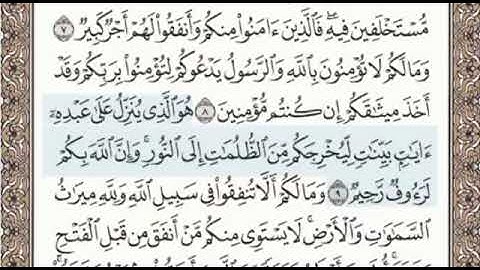 مُّسْتَخْلَفِينَ فِيهِ ۖ فَالَّذِينَ ءَامَنُوا۟ مِنكُمْ وَأَنفَقُوا۟ لَهُمْ أَجْرٌ كَبِيرٌ ٧
وَمَا لَكُمْ لَا تُؤْمِنُونَ بِاللَّهِ ۙ وَالرَّسُولُ يَدْعُوكُمْ لِتُؤْمِنُوا۟ بِرَبِّكُمْ وَقَدْ
أَخَذَ مِيثَـٰقَكُمْ إِن كُنتُم مُّؤْمِنِينَ ٨ هُوَ الَّذِى يُنَزِّلُ عَلَىٰ عَبْدِهِۦٓ
ءَايَـٰتٍۭ بَيِّنَـٰتٍ لِّيُخْرِجَكُم مِّنَ الظُّلُمَـٰتِ إِلَى النُّورِ ۚ وَإِنَّ اللَّهَ بِكُمْ
لَرَءُوفٌ رَّحِيمٌ ٩ وَمَا لَكُمْ أَلَّا تُنفِقُوا۟ فِى سَبِيلِ اللَّهِ وَلِلَّهِ مِيرَٰثُ
السَّمَـٰوَٰتِ وَالْأَرْضِ ۚ لَا يَسْتَوِى مِنكُم مَّنْ أَنفَقَ مِن قَبْلِ الْفَتْحِ